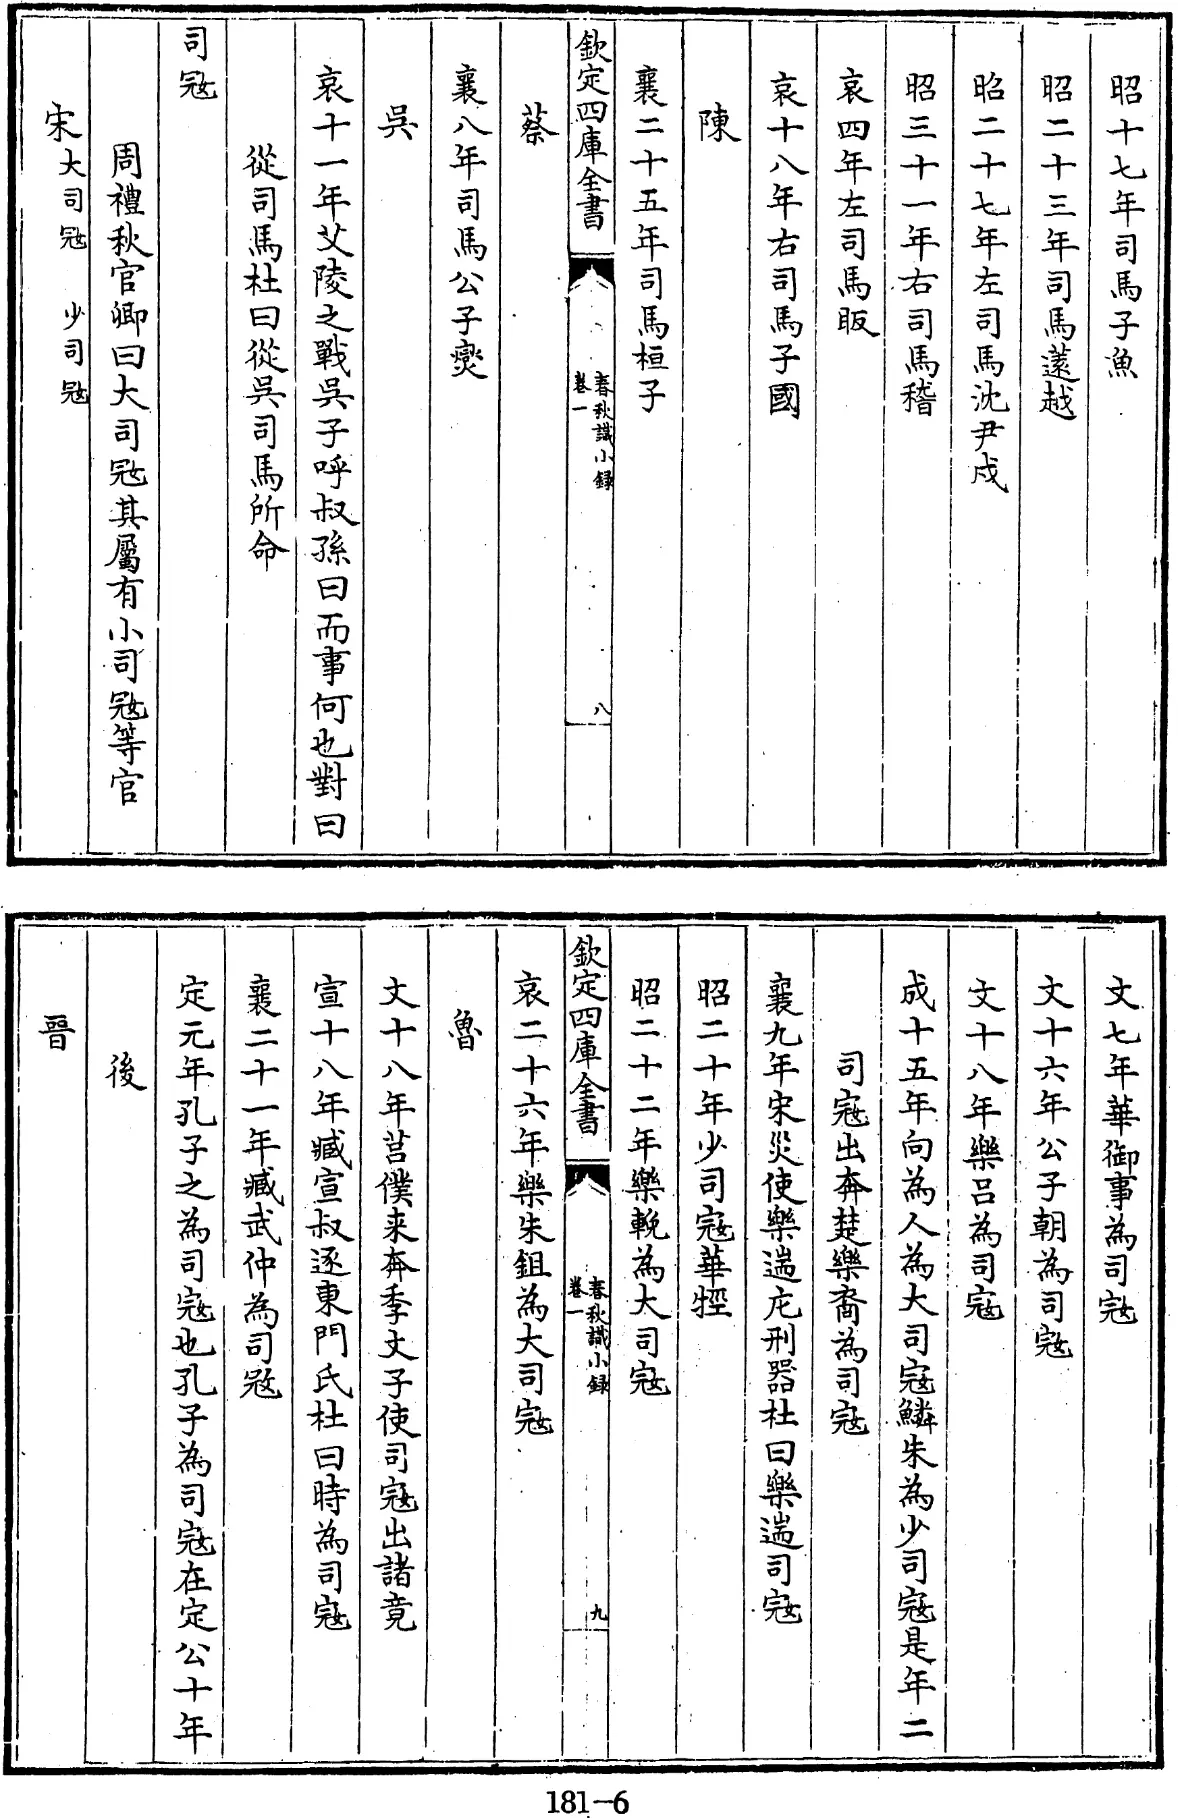 昭十七年司馬子魚
昭二十三年司馬薳越
昭二十七年左司馬沈尹戍
昭三十一年右司馬稽
哀四年左司馬眅
哀十八年右司馬子國
陳
襄二十五年司馬桓子
欽定四庫全書
春秋識小錄
卷一
八
蔡
襄八年司馬公子燮
吳
哀十一年艾陵之戰吳子呼叔孫曰而事何也對曰
從司馬杜曰從吳司馬所命
司寇
周禮秋官卿曰大司寇其屬有小司寇等官
宋大司寇 少司寇
文七年華御事為司寇
文十六年公子朝為司寇
文十八年樂呂為司寇
成十五年向為人為大司寇鱗朱為少司寇是年二
司寇出奔楚樂裔為司寇
襄九年宋災使樂遄庀刑器杜曰樂遄司寇
昭二十年少司寇華牼
昭二十二年樂輓為大司寇
欽定四庫全書
春秋識小錄
卷一
九
哀二十六年樂朱鉏為大司寇
魯
文十八年莒僕来奔季文子使司寇出諸竟
宣十八年臧宣叔逐東門氏杜曰時為司寇
襄二十一年臧武仲為司寇
定元年孔子之為司寇也孔子為司寇在定公十年
後
晉
181-6